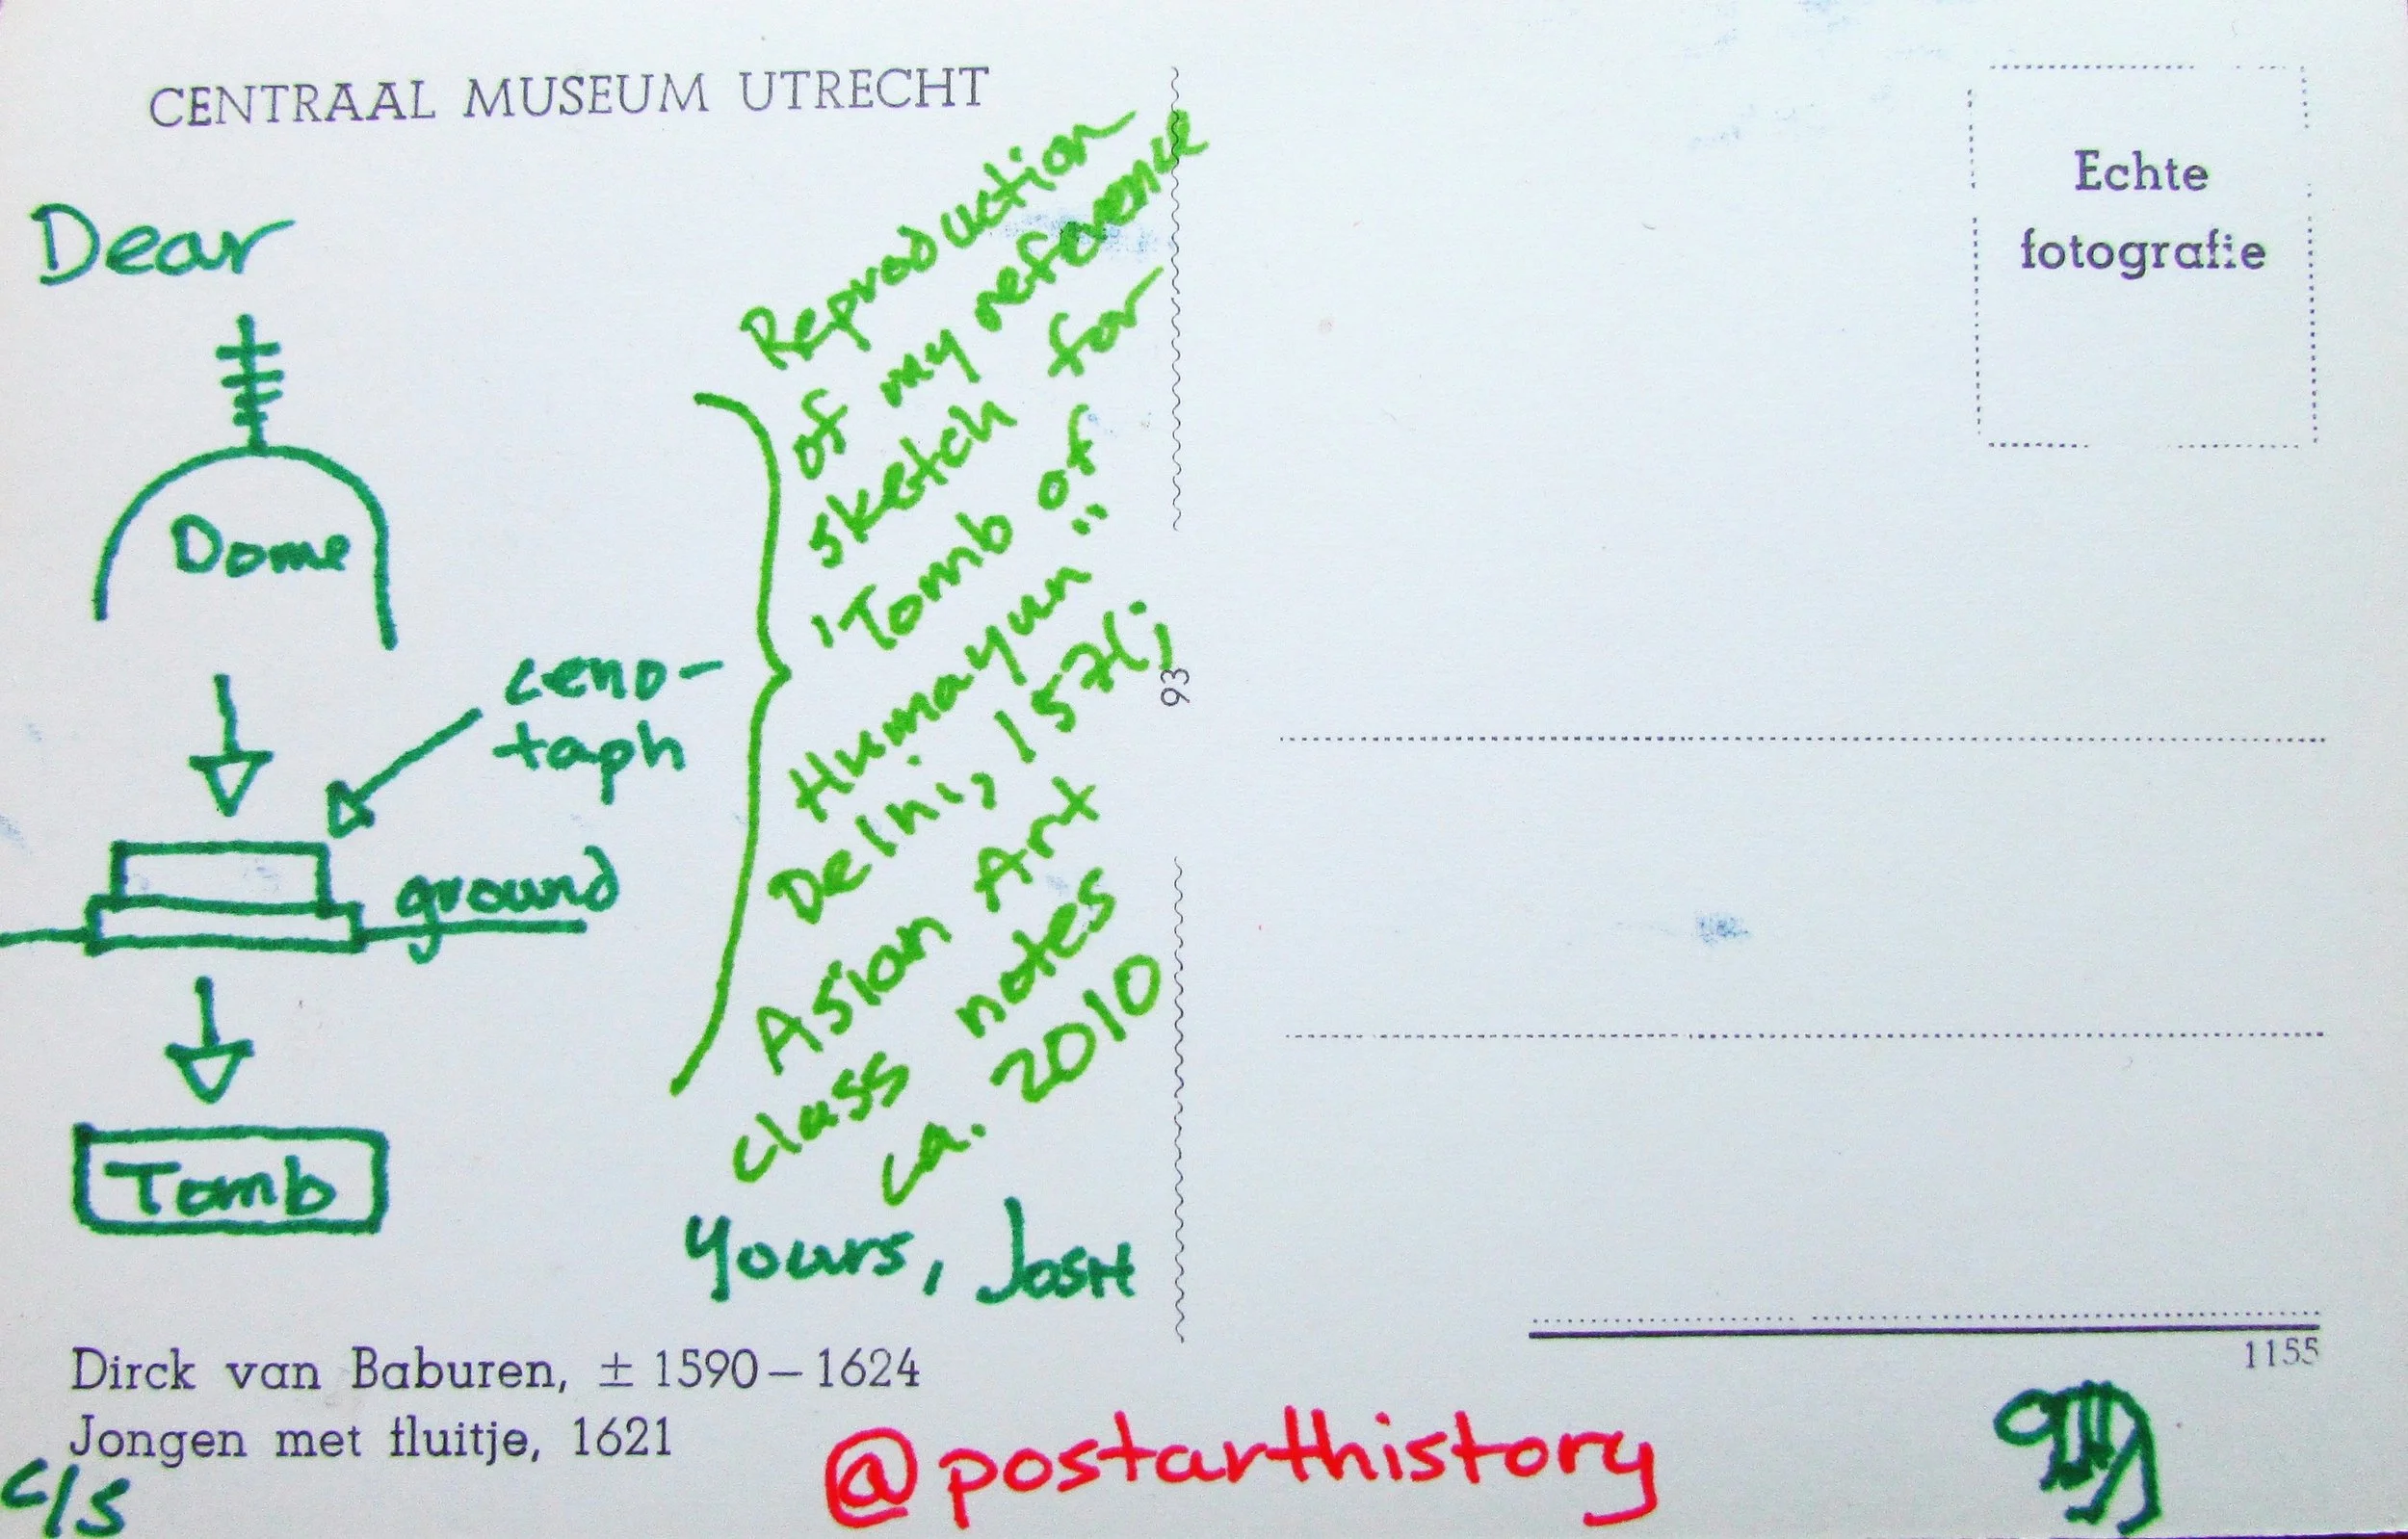 CENTRAAL MUSEUM UTRECHT
Dear
Dome
ceno-
taph
ground
Tomb
Reproduction
of my reference
sketch for
"Tomb of
Humayun"
Delhi, 1571;
Asian Art
class notes
ca. 2010
Yours, JosH
Dirck van Baburen, ± 1590–1624
Jongen met fluitje, 1621
c/s
@postarthistory
93
Echte
fotografie
1155